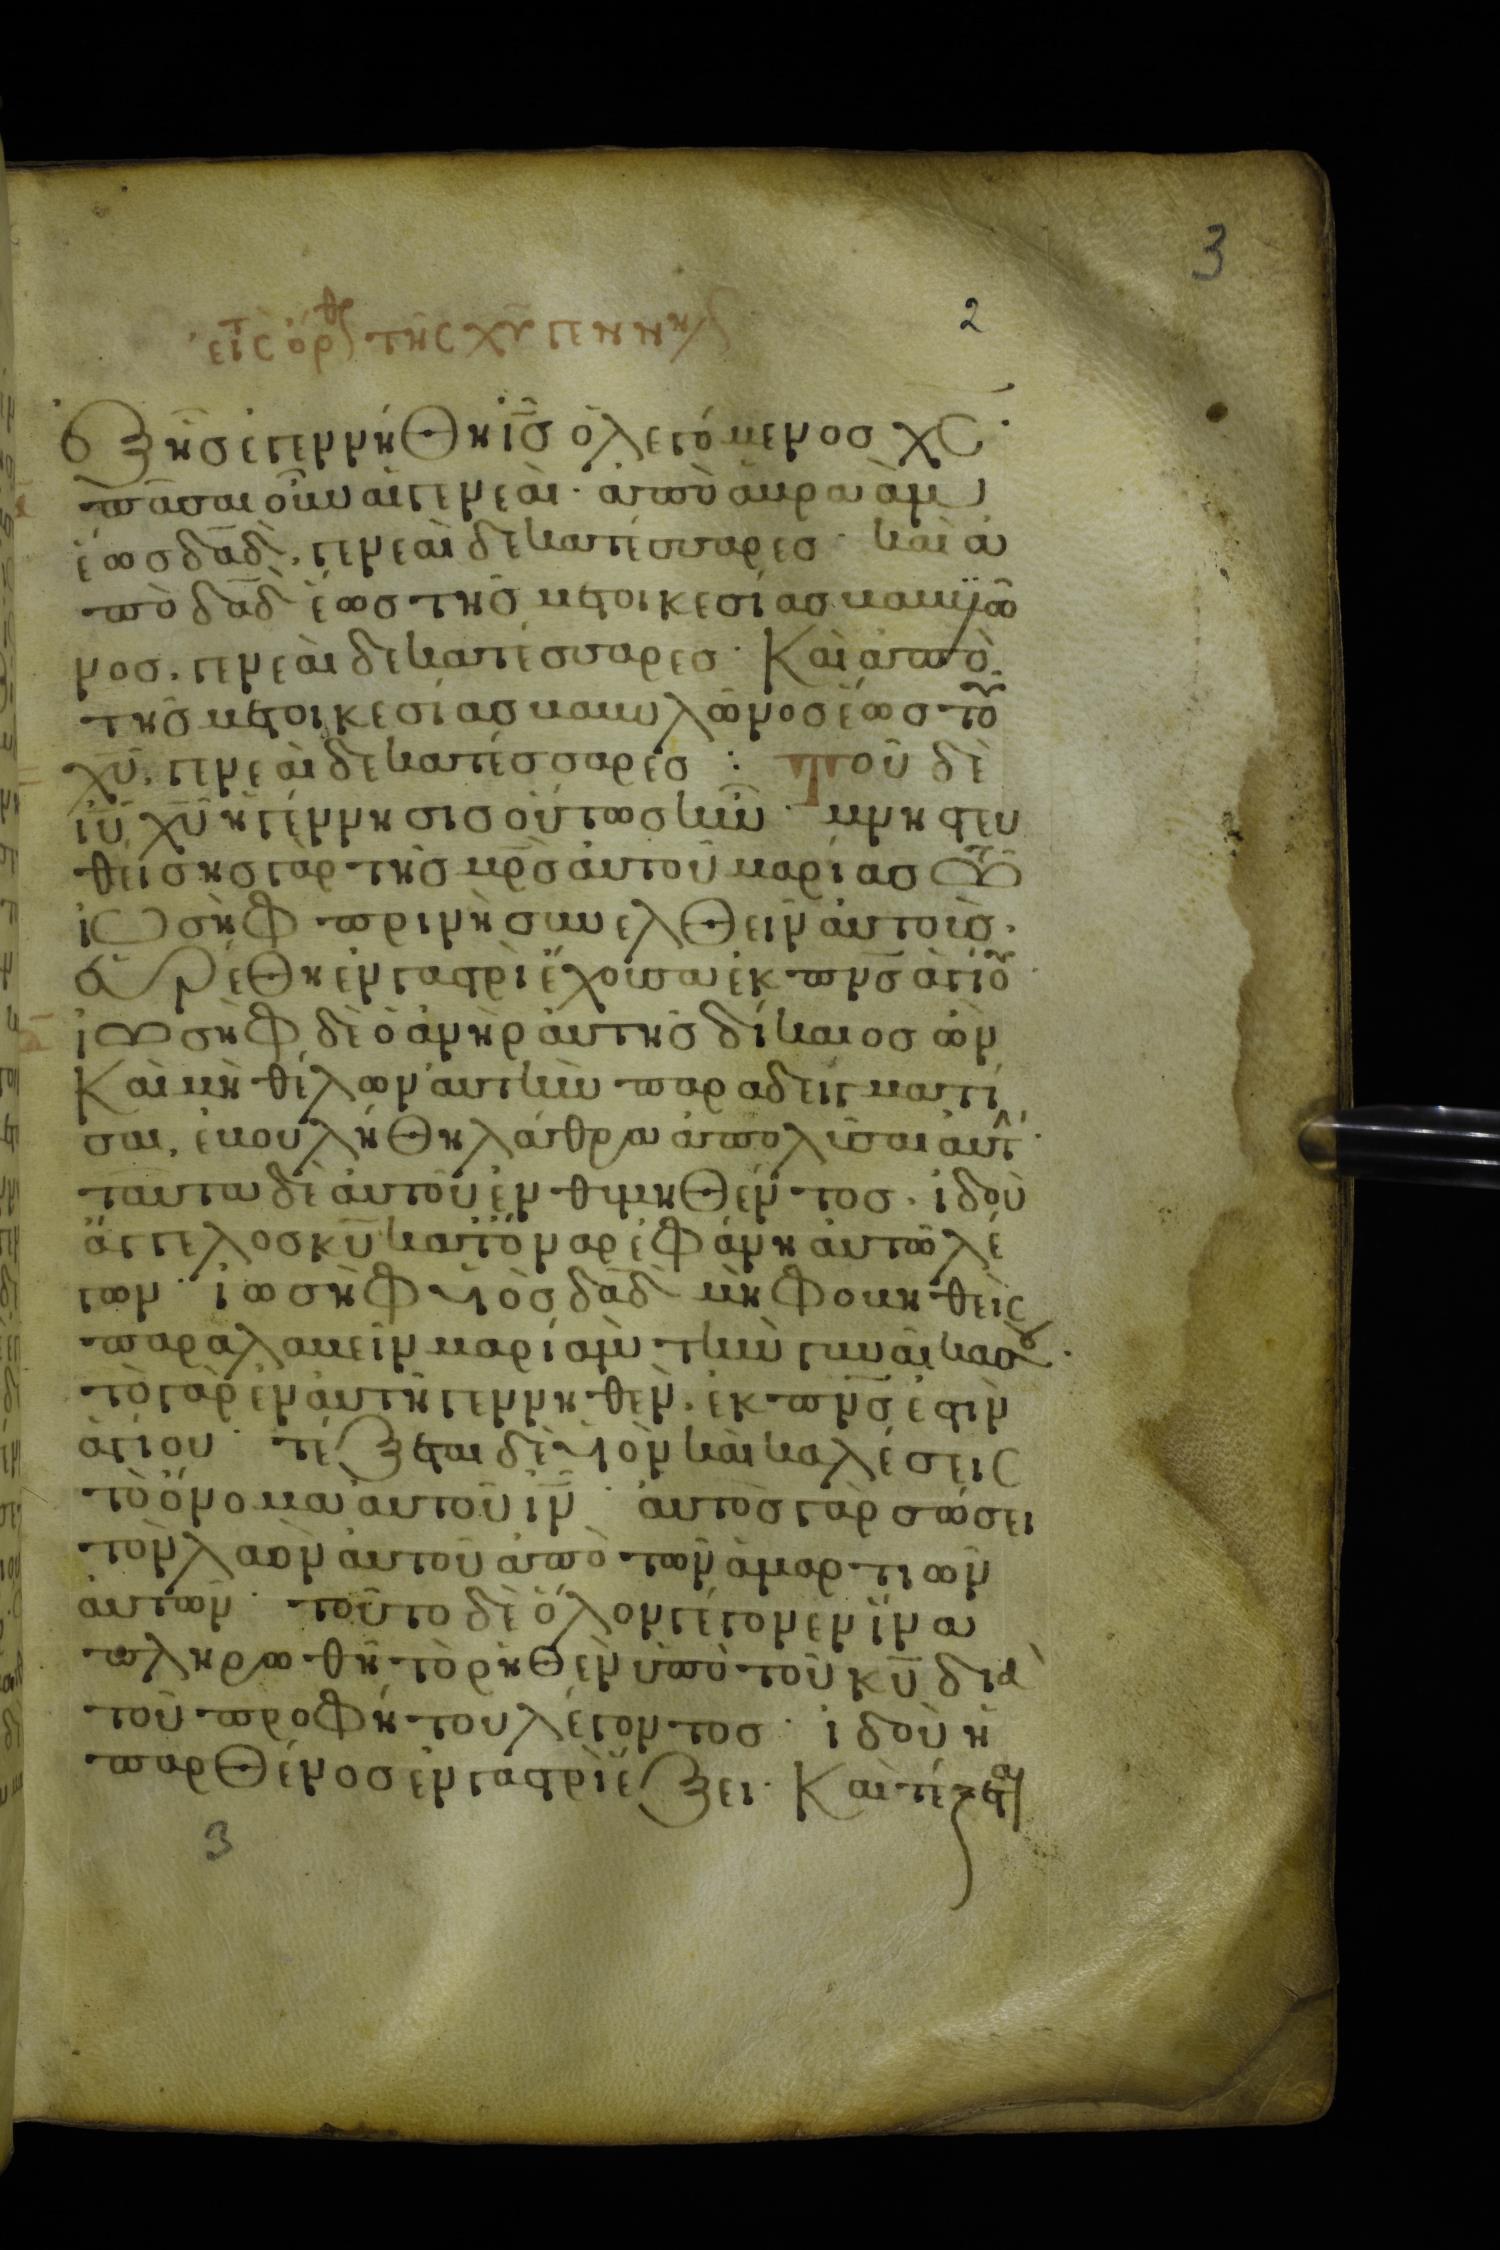 3
2
εἰς τ ὄρθ τῆς χυ γεννή
ἐξ ἧς ἐγεννήθη ις ὁ λεγόμενος χς·
πᾶσαι οὖν αἱ γενεαὶ· ἀπὸ ἀβραὰμ
ἕως δαδ, γενεαὶ δεκατέσσαρες· καὶ ἀ
πὸ δαδ ἕως τῆς μετοικεσίας βαβυλῶ
νος, γενεαὶ δεκατέσσαρες· Καὶ ἀπὸ
τῆς μετοικεσίας βαβυλῶνος ἕως τοῦ
χυ, γενεαὶ δεκατέσσαρες : Τοῦ δὲ
ιυ χυ ἡ γέννησις οὕτως ἦν· μνηστευ
θείσης γὰρ τῆς μρς αὐτοῦ μαρίας τῶ
ἰωσὴφ πρινὴ συνελθεῖν αὐτοὺς·
εὑρέθη ἐν γαστρὶ ἔχουσα ἐκ πνς ἁγίου·
ἰωσὴφ δὲ ὁ ἀνὴρ αὐτῆς δίκαιος ὢν
Καὶ μὴ θέλων αὐτὴν παραδειγματί
σαι, ἐβουλήθη λάθρα ἀπολῦσαι αὐτ·
ταῦτα δὲ αὐτοῦ ἐνθυμηθέντος· ἰδοὺ
ἄγγελος κυ κατ᾽ ὄναρ ἐφάνη αὐτῶ λέ
γων· ἰωσὴφ υἱὸς δαδ μὴ φοβηθεὶς
παραλαβεῖν μαριὰμ τὴν γυναῖκα σου·
τὸ γὰρ ἐν αὐτῆ γεννηθὲν, ἐκ πνς ἐστὶν
ἁγίου· τέξεται δὲ υἱὸν καὶ καλέσεις
τὸ ὄνομα αὐτοῦ ιν· αὐτὸς γὰρ σώσει
τὸν λαὸν αὐτοῦ ἀπὸ τῶν ἁμαρτιῶν
αὐτῶν· τοῦτο δὲ ὅλον γέγονεν ἵνα
πληρωθῆ τὸ ῥηθὲν ὑπὸ τοῦ κυ διὰ
τοῦ προφήτου λέγοντος· ἰδοὺ ἡ
παρθένος ἐν γαστρὶ ἕξει· Καὶ τέξετα
3